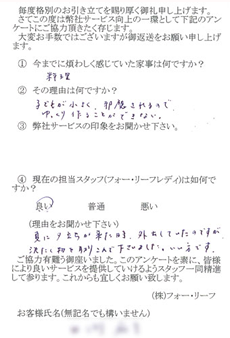 毎度格別のお引き立てを賜り厚く御礼申し上げます。
さてこの度は弊社サービス向上の一環として下記のアンケートにご協力頂きたく存じます。
大変お手数ではございますが御返送をお願い申し上げます。
① 今までに煩わしく感じていた家事は何ですか?
料理
② その理由は何ですか?
子どもが小さく、邪魔されるので、
ゆっくり作ることができない。
③ 弊社サービスの印象をお聞かせ下さい。
④ 現在の担当スタッフ(フォー・リーフレディ)は如何ですか?
良い 普通 悪い
(理由をお聞かせ下さい)
夏に夕立ちが来た時、外出していたのですが、
洗たく物を取りこんで下さいました。いい方です。
ご協力有難う御座いました。このアンケートを素に、皆様により良いサービスを提供していけるようスタッフ一同精進して参ります。これからも宜しくお願い致します。
(株)フォー・リーフ
お客様氏名(無記名でも構いません)